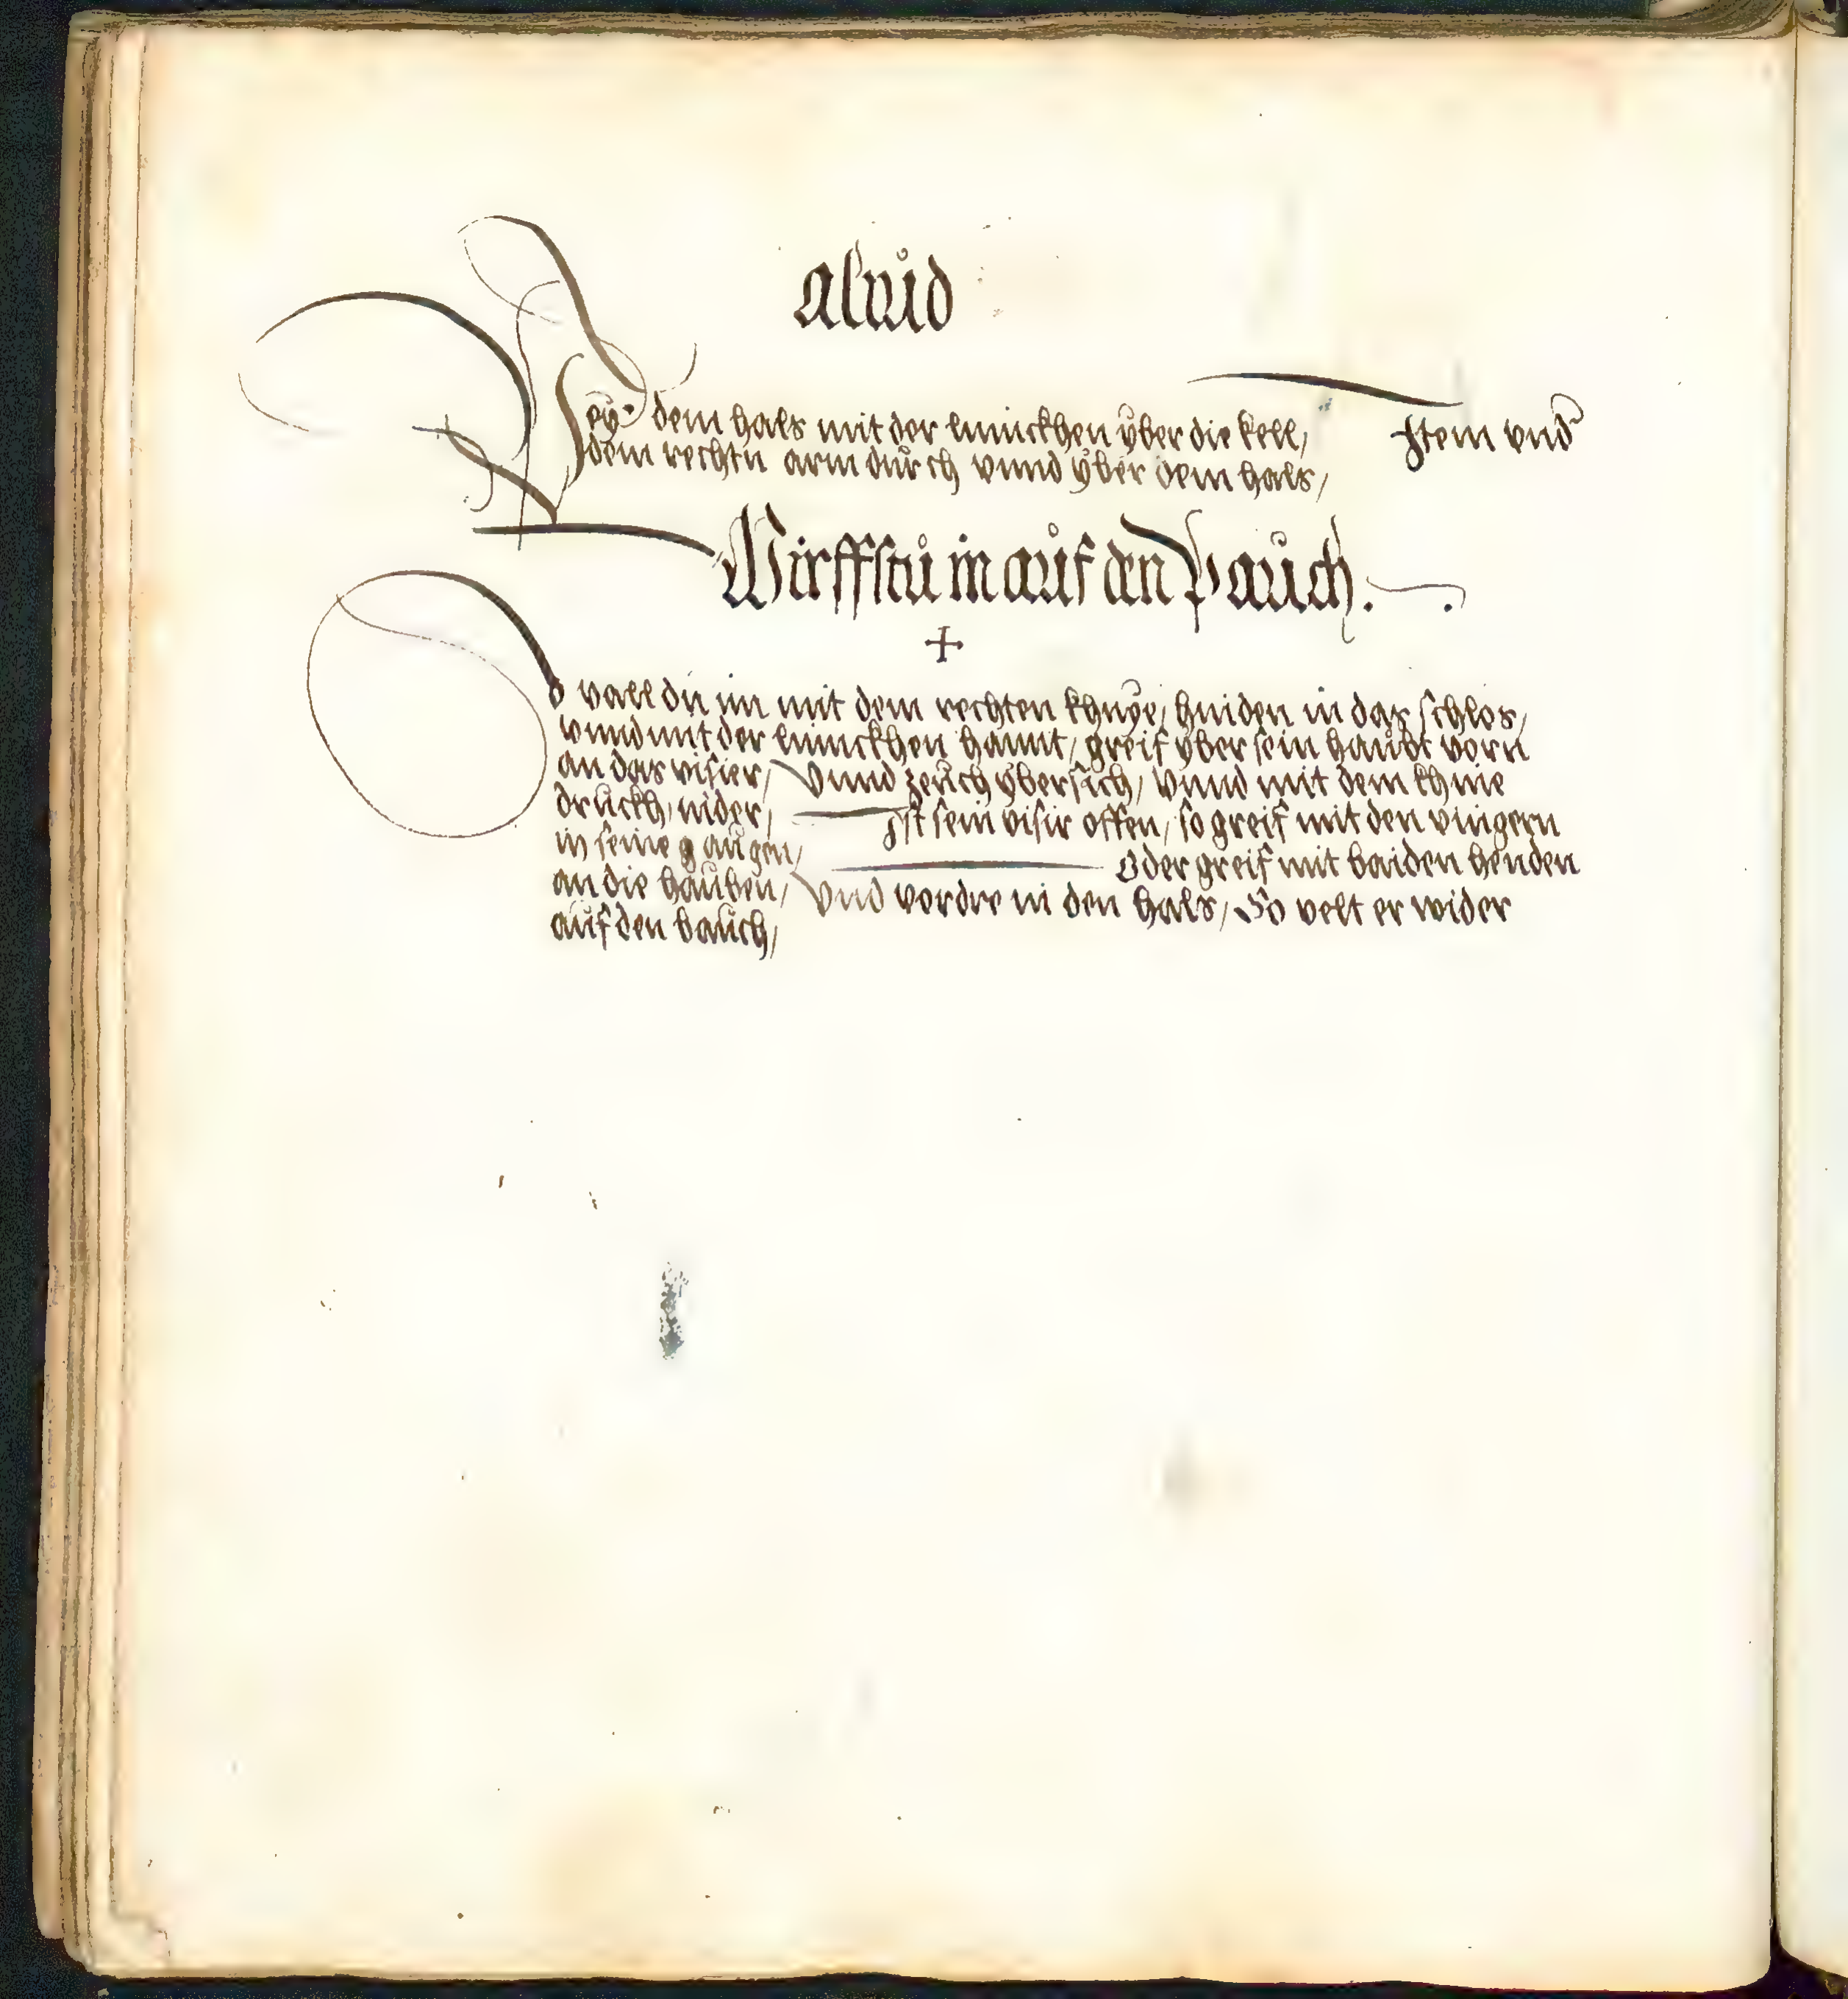 Aluid
Pey dem hals mit der linnckhen über die kell, Item vnd
dem rechtn arm durch vnnd über dem hals,
Wirffstu in auf den Pauch.
So vall du im mit dem rechten khnye, hinden in das schlos,
vnnd mit der linnckhen hannt, greif über sein haubt vorn
an das visier, Vnnd zeuch übersich, Vnnd mit dem khnie
druckh nider, Ist sein visir offen, so greif mit den vingern
in seine g augen, Oder greif mit baiden henden
an die hauben, Vnd vordre in den hals, So velt er wider
auf den bauch,